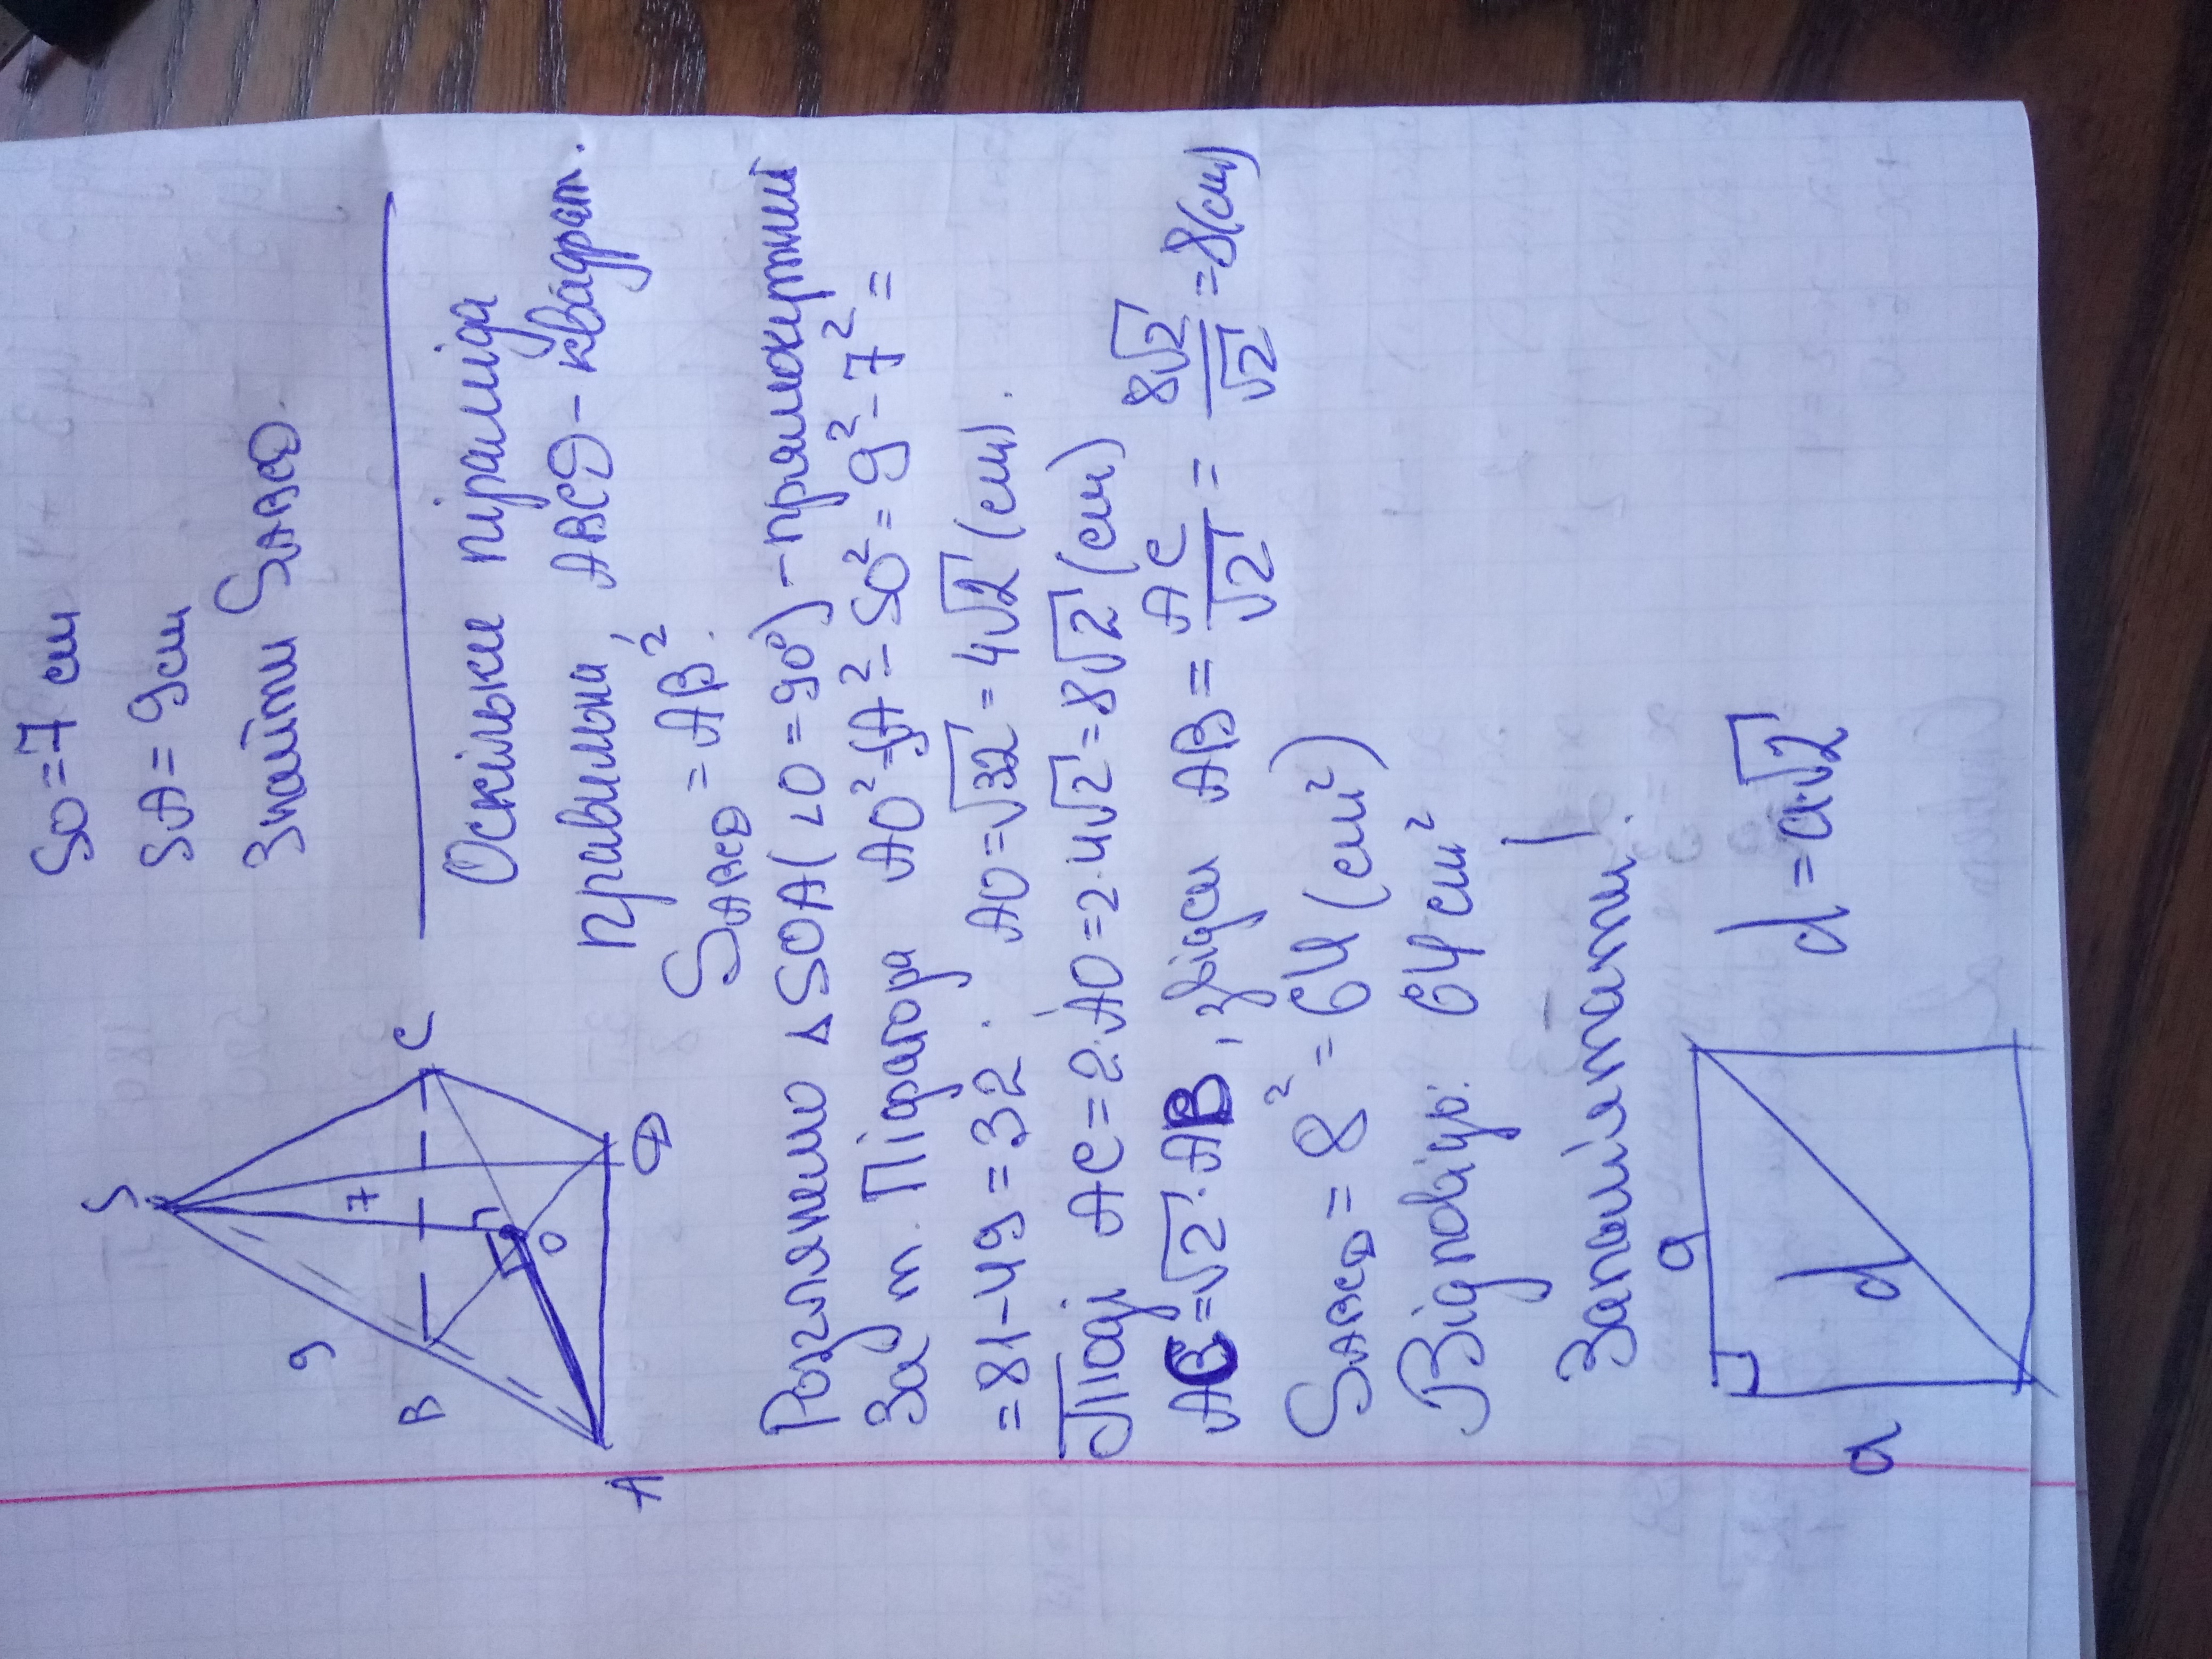 SO = 7 см
SA = 9 см
Знайти S ABCD.
S
7
9
B
C
O
A
D
Оскільки піраміда
правильна, ABCD - квадрат.
S ABCD = AB².
Розглянемо ΔSOA (∠O = 90°) - прямокутний
За т. Піфагора AO² = SA² - SO² = 9² - 7² =
= 81 - 49 = 32. AO = √32 = 4√2 (см).
Тоді AC = 2·AO = 2·4√2 = 8√2 (см)
AC = √2·AB, звідси AB = AC/√2 = 8√2/√2 = 8 (см)
S ABCD = 8² = 64 (см²)
Відповідь: 64 см²
Запам'ятати!
a
a
d
d = a√2